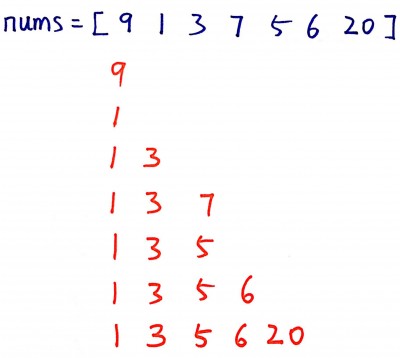 nums = [ 9 1 3 7 5 6 20 ]
9
1
1 3
1 3 7
1 3 5
1 3 5 6
1 3 5 6 20